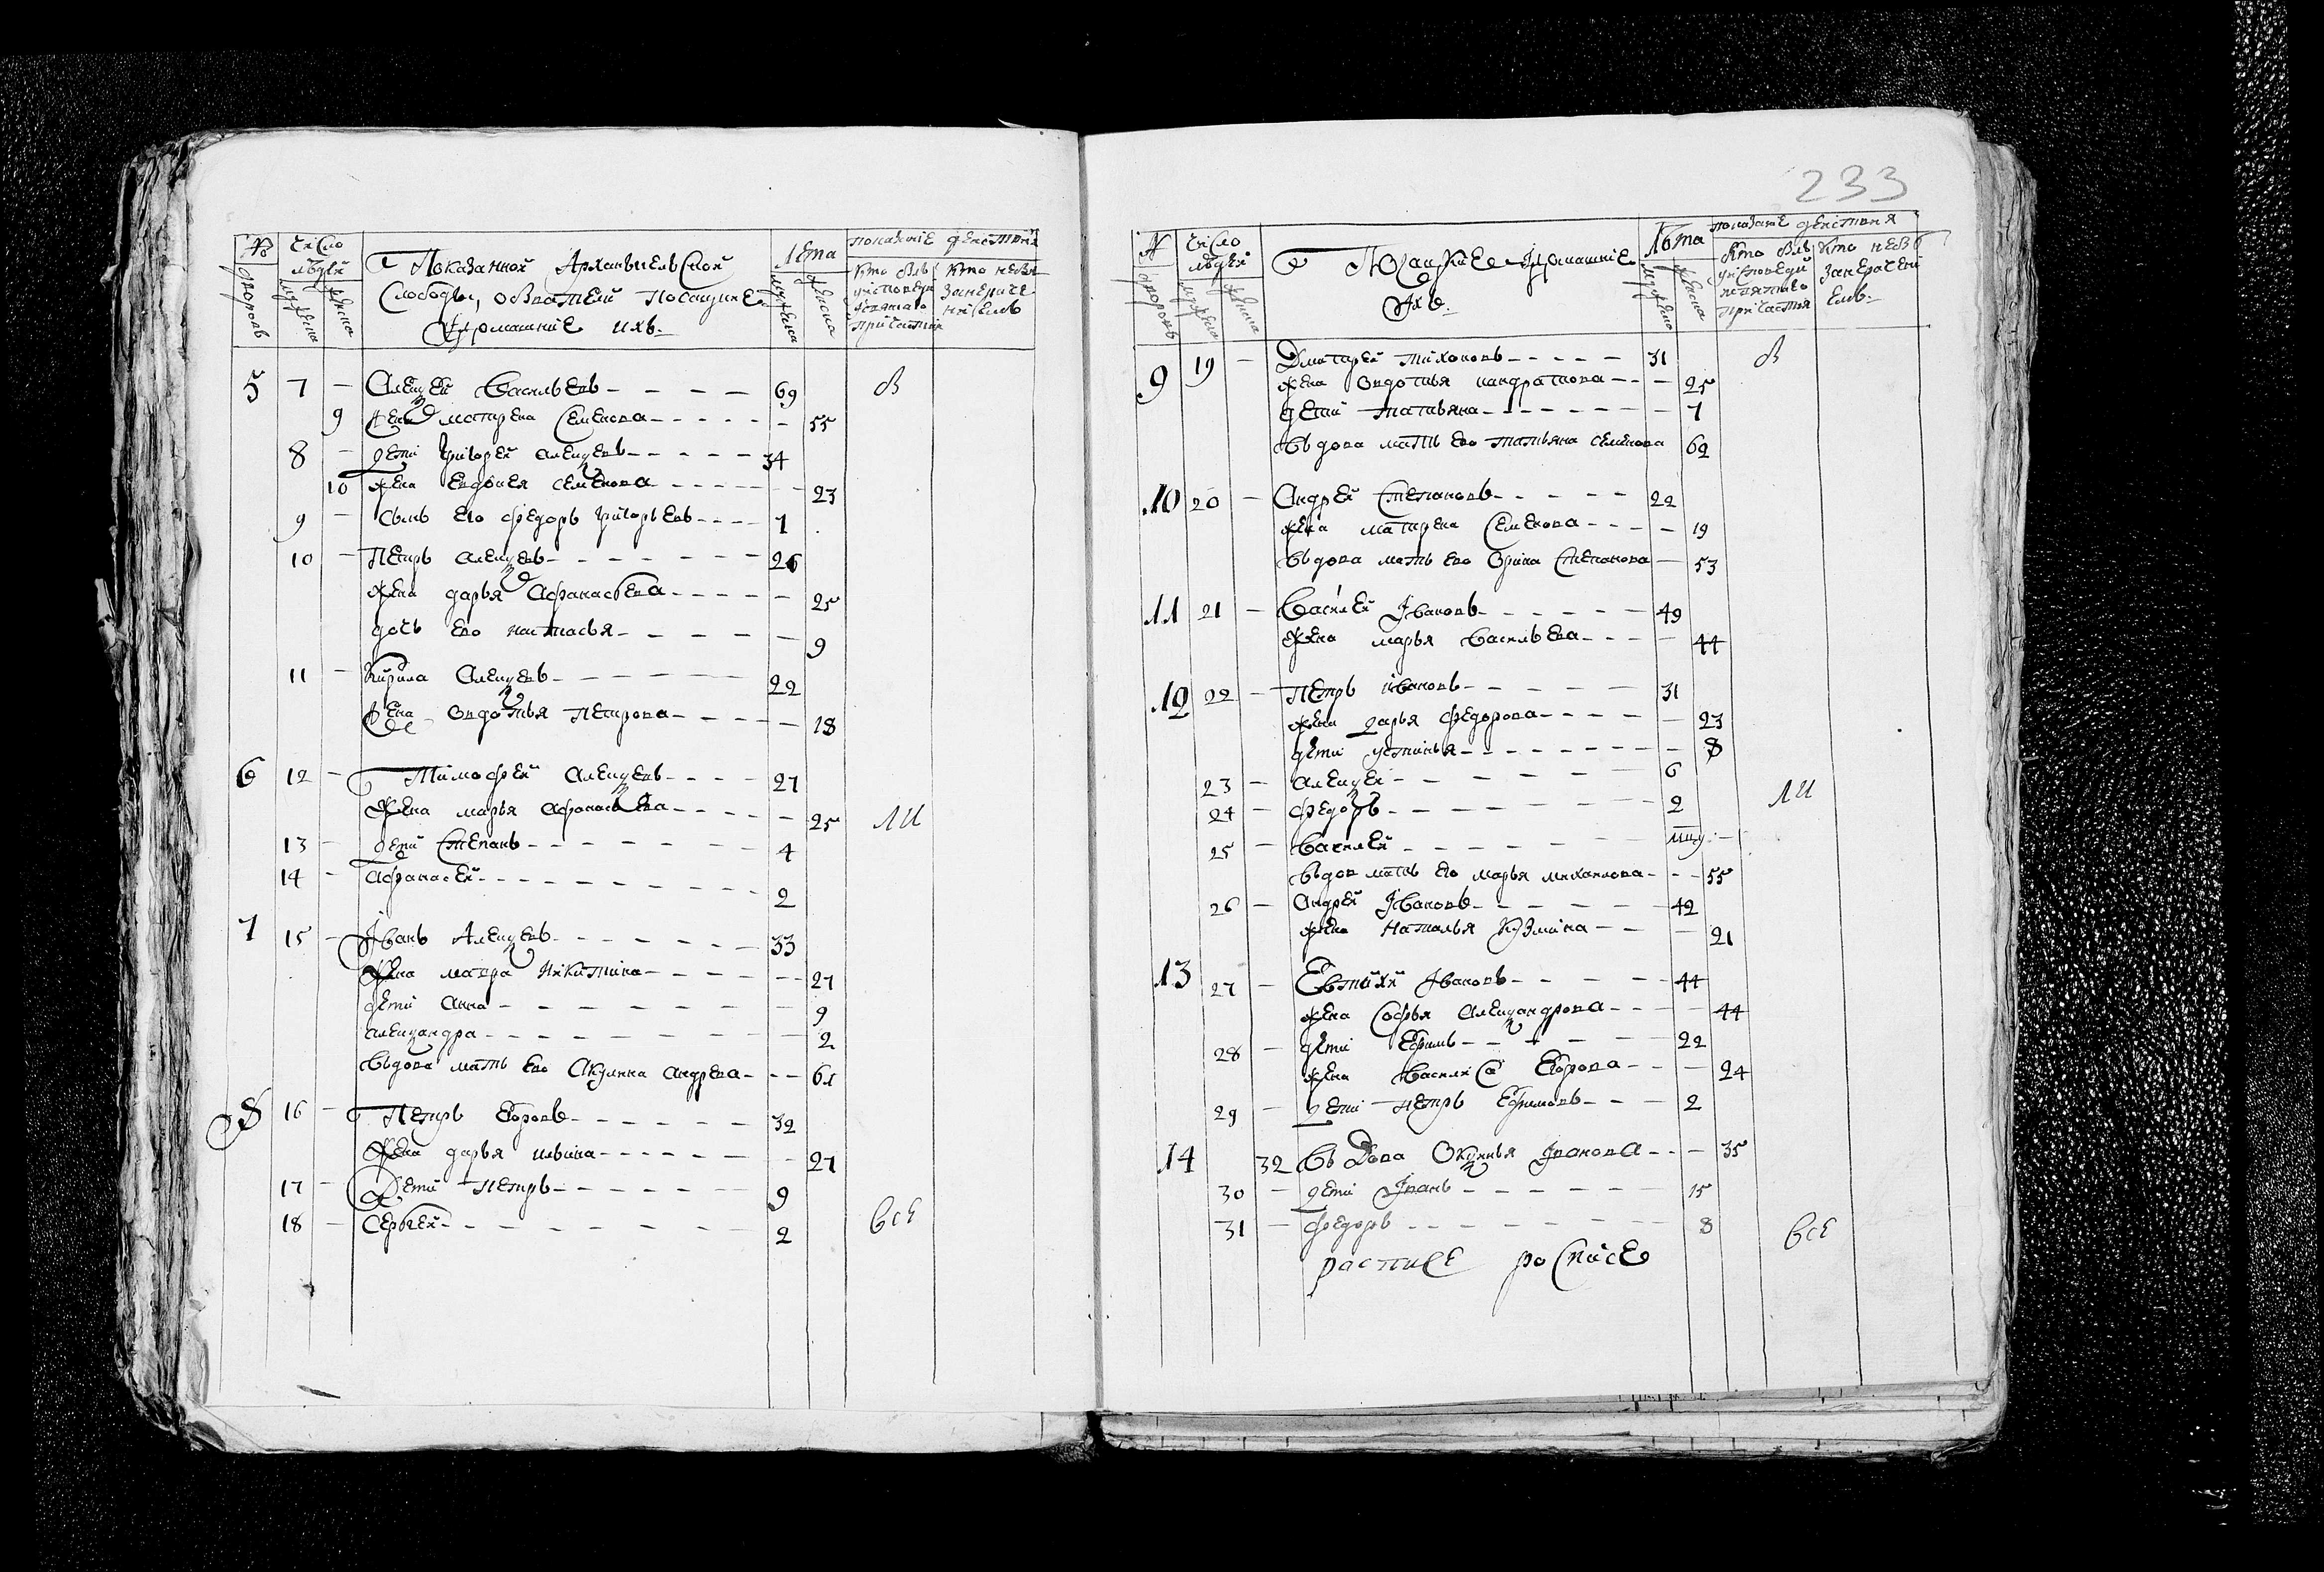 № дворовъ
число людей
мужеска
женска
Показанной Архангельской
Слободы, обвателй посацкие
и домашние ихъ
лета
мужеска
женска
показание действия
кто былъ у исповеди и святаго причастия
кто не былъ
5 7 — Алеѯей Васильевъ — 69 б
9 жена матрена Семенова — 55
8 — дети григорей алеѯеевъ — 34
10 жена евдокея семенова — 23
9 — сынъ его федоръ григорьевъ — 1
10 — Петръ алеѯевъ — 26
жена дарья Афанасьева — 25
дочь его настасья — 9
11 — Кирила Алеѯевъ — 22
жена овдотья петрова — 18
6 12 — Тимофей алеѯевъ — 27
жена марья афонасьева — 25 ЛИ
13 — дети Степанъ — 4
14 — афанасей — 2
7 15 — Iванъ Алеѯевъ — 33
жена мавра Никитина — 27
дети анна — 9
алеѯандра — 2
вьдова мать ево Акулина андрева — 61
8 16 — Петръ Егоровъ — 32
жена дарья ильина — 27
17 — Дети петръ — 9
18 — Сергей — 2 все
233
№ дворовъ
число людей
мужеска
женска
Посацкие и домашние
ихъ
лѣта
мужеска
женска
показание действия
кто былъ у исповеди и святаго причастия
кто не былъ
9 19 — Дмитрей тихоновъ — 31 б
жена овдотья кандратиова — 25
дети татьяна — 7
вьдова мать ево татьяна семенова 62
10 20 — Андрей Степановъ — 22
жена матрена Семенова — 19
вьдова мать ево Орина Степанова — 53
11 21 — Василей Iвановъ — 49
жена марья васильева — 44
12 22 — петръ ивановъ — 31
жена дарья федорова — 23
дети устинья — 8
23 — алеѯей — 6
24 — федоръ — 2 ЛИ
25 — василей —
вьдов мать его марья михаилова — 55
26 — Андрей Iвановъ — 42
жена наталья Кузмина — 21
13 27 — Евтихи Iвановъ — 44
жена Софья алеѯандрова — 44
28 — дети Ефимъ — 22
жена василиса Егорова — 24
29 — дети петръ Ефимовъ — 2
14 32 вьДова Окѯинья Iванова — 35
30 — дети Iванъ — 15
31 — федоръ — 8 все